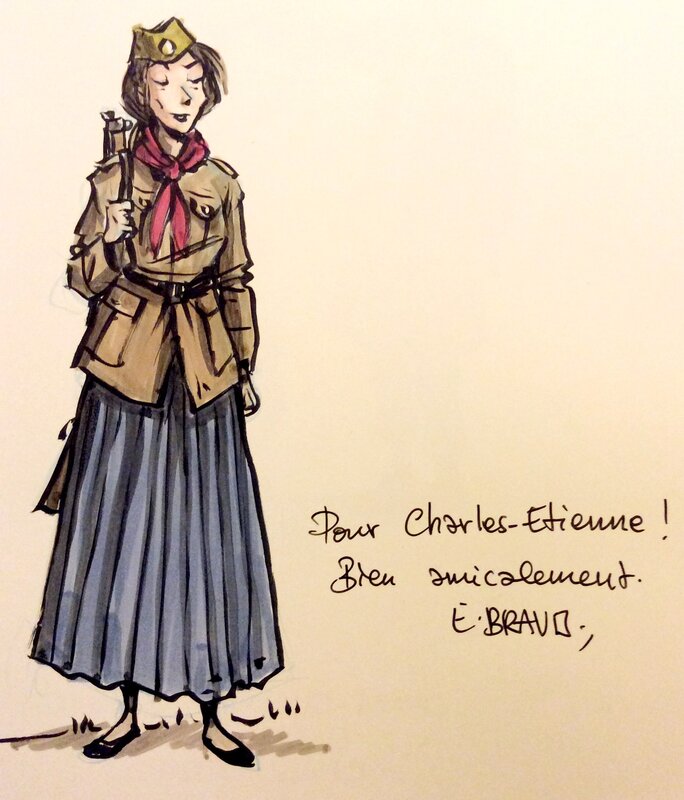 Pour Charles-Etienne !
Bien amicalement.
E. BRAVO.,